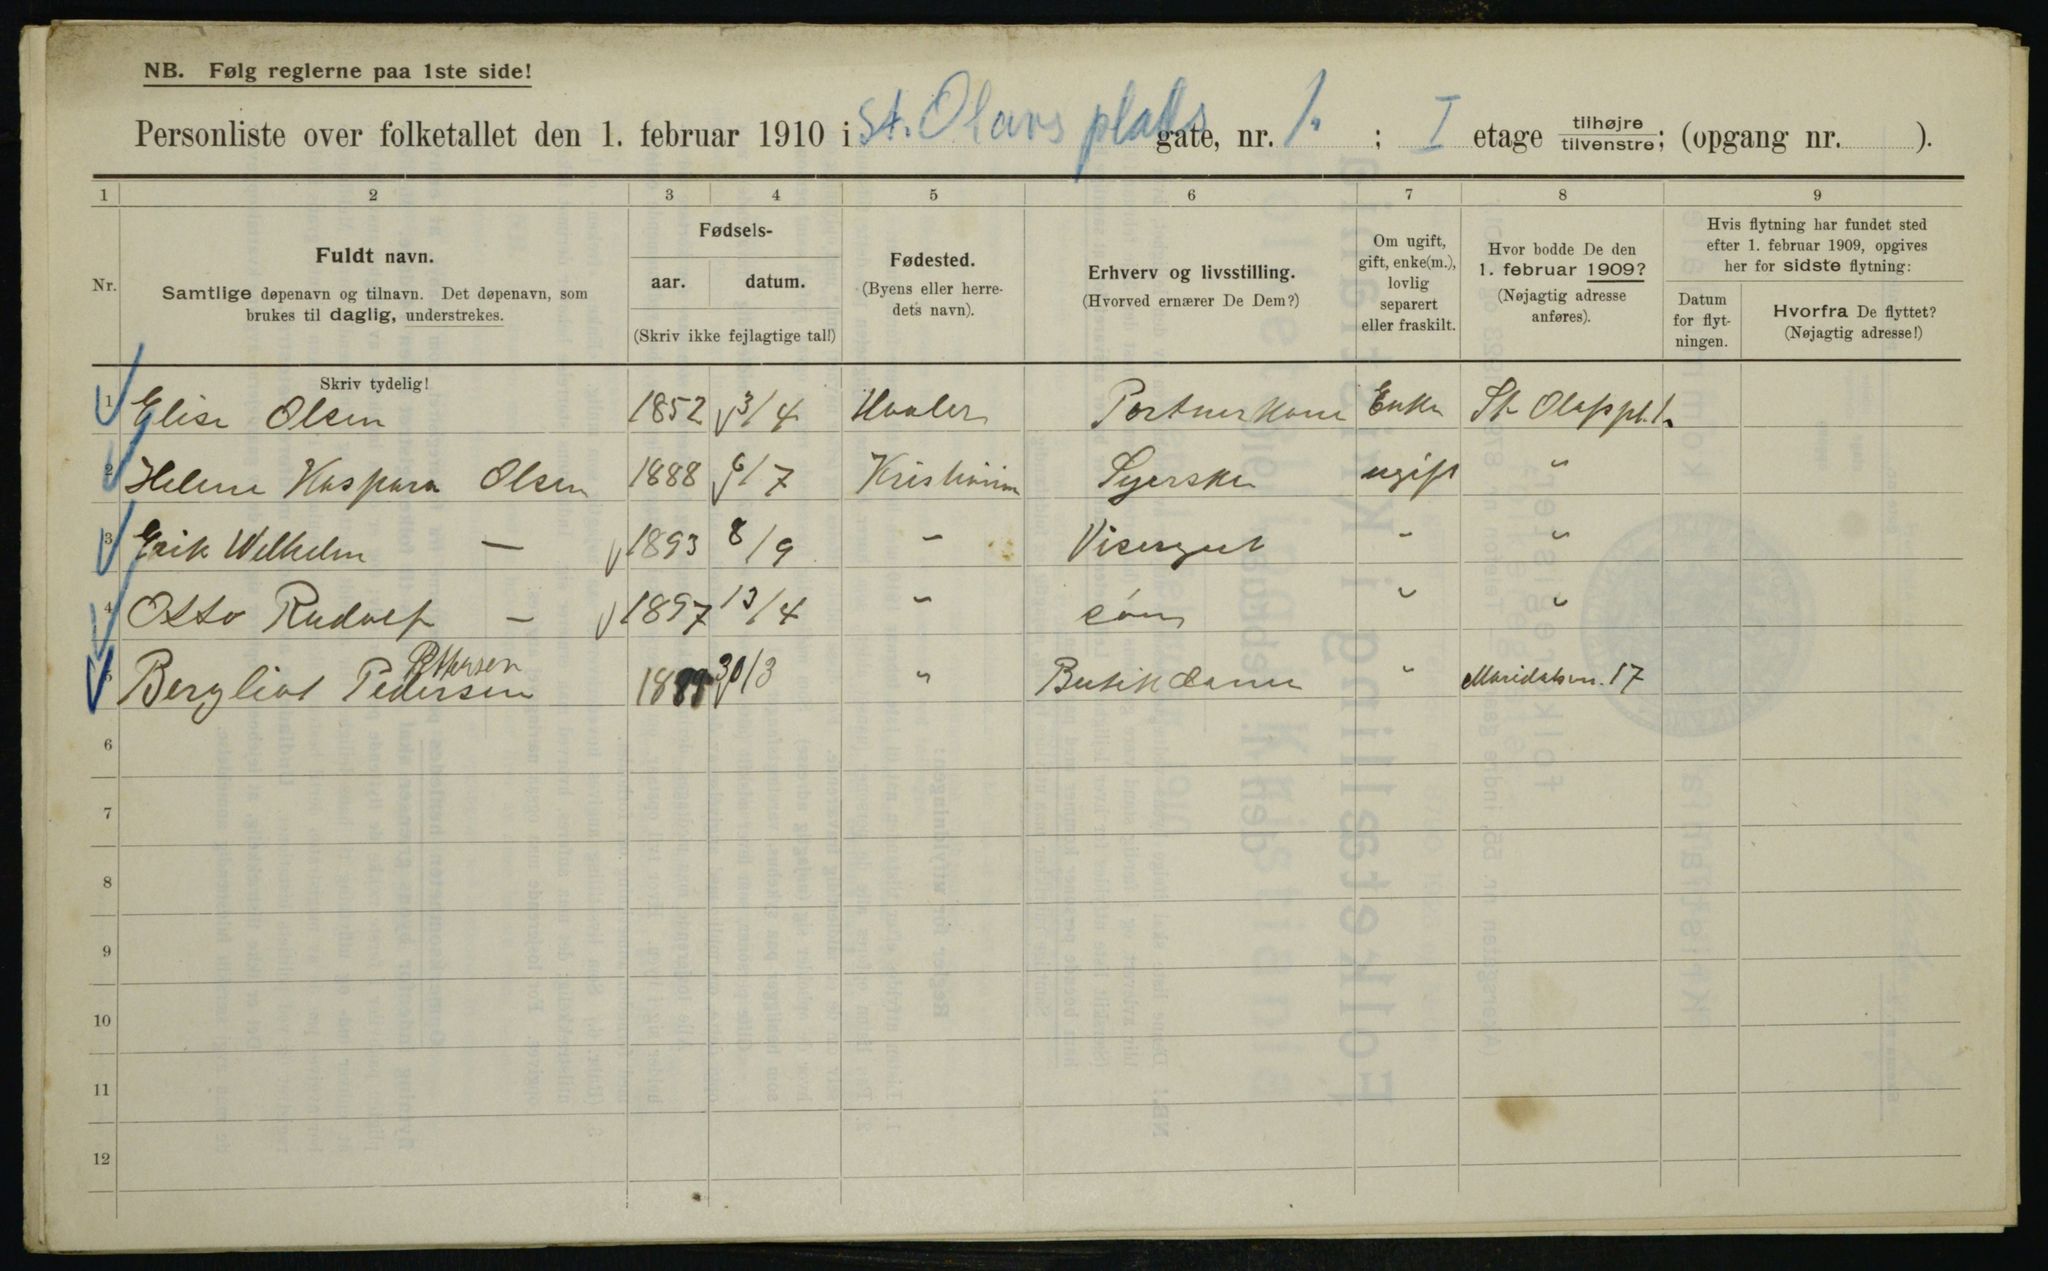 NB. Følg reglerne paa 1ste side!
Personliste over folketallet den 1. februar 1910 i St. Olavs plads gate, nr. 1. ; I etage tilhøjre tilvenstre; (opgang nr. ).
1 2 3 4 5 6 7 8 9
Nr.
Fuldt navn.
Samtlige døpenavn og tilnavn. Det døpenavn, som
brukes til daglig, understrekes.
Skriv tydelig!
Fødsels-
aar. datum.
(Skriv ikke fejlagtige tal!)
Fødested.
(Byens eller herre-
dets navn).
Erhverv og livsstilling.
(Hvorved ernærer De Dem?)
Om ugift,
gift, enke(m.),
lovlig
separert
eller fraskilt.
Hvor bodde De den
1. februar 1909?
(Nøjagtig adresse
anføres).
Hvis flytning har fundet sted
efter 1. februar 1909, opgives
her for sidste flytning:
Datum
for flyt-
ningen.
Hvorfra De flyttet?
(Nøjagtig adresse!)
1 Elise Olsen 1852 3/4 Hvaler Portnerkone Enke St. Olafspl. 1.
2 Helene Kaspara Olsen 1888 6/7 Kristiania Syerske ugift "
3 Erik Wilhelm — 1893 8/9 " Visergut " "
4 Otto Rudolf — 1897 13/4 " søn " "
Pettersen
5 Bergliot Pedersen 1889 30/3 " Butikdame " Maridalsvn. 17
6
7
8
9
10
11
12